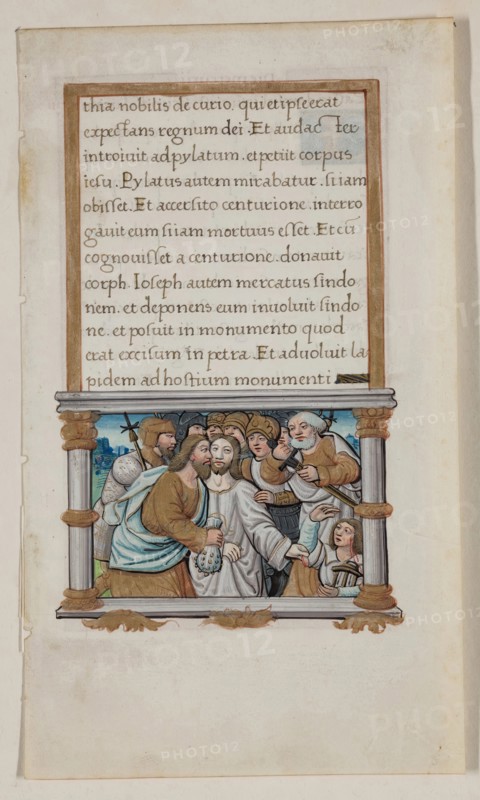 thiæ nobilis de curio. qui et ipse erat
expectans regnum dei. Et audacter
introiuit ad pylatum. et petiit corpus
iesu. Pylatus autem mirabatur. si iam
obisset. Et accersito centurione. interro
gauit eum si iam mortuus esset. Et cū
cognouisset a centurione. donauit
corph. Ioseph autem mercatus sindo
nem. et deponens eum inuoluit sindo
ne. et posuit in monumento quod
erat excisum in petra. Et aduoluit la
pidem ad hostium monumenti
PHOTO12